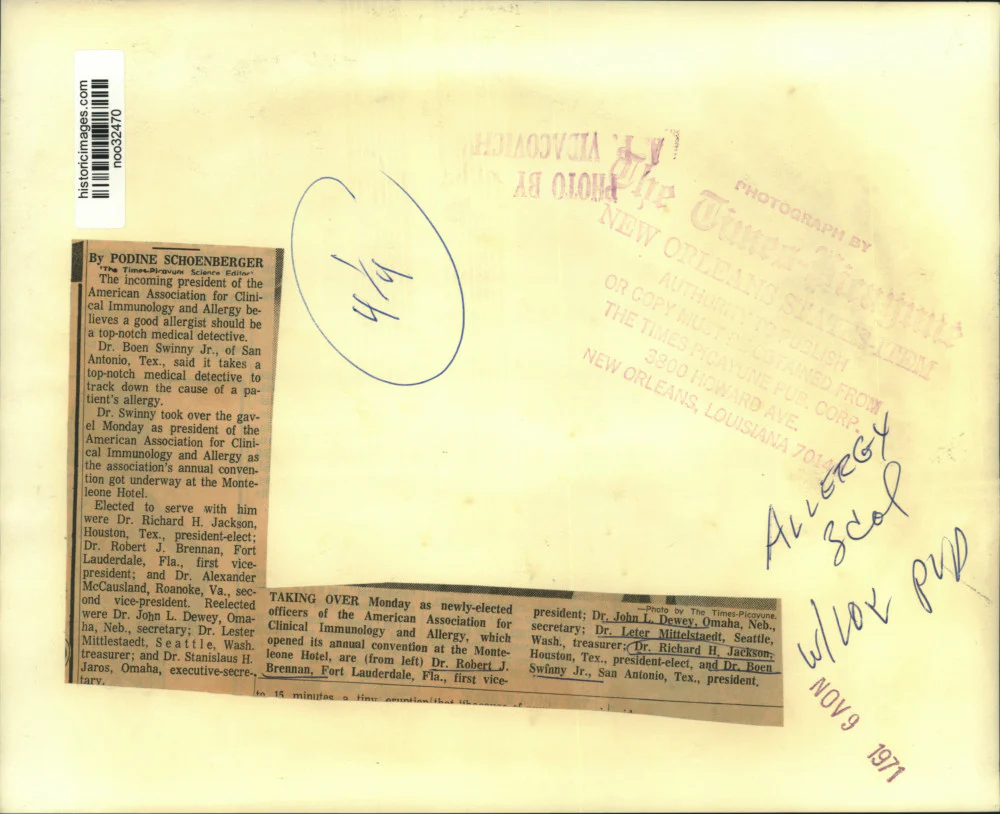 historicimages.com
noo32470
PHOTO BY
A.P. VIDACOVICH
PHOTOGRAPH BY
The Times-Picayune
NEW ORLEANS STATES-ITEM
AUTHORITY TO
OR COPY MUST OBTAINED FROM
THE TIMES PICAYUNE PUB. CORP.
3800 HOWARD AVE.
NEW ORLEANS, LOUISIANA
4/9
By PODINE SCHOENBERGER
(The Times-Picayune Science Editor)
The incoming president of the
American Association for Clini-
cal Immunology and Allergy be-
lieves a good allergist should be
a top-notch medical detective.
Dr. Boen Swinny Jr., of San
Antonio, Tex., said it takes a
top-notch medical detective to
track down the cause of a pa-
tient's allergy.
Dr. Swinny took over the gav-
el Monday as president of the
American Association for Clini-
cal Immunology and Allergy as
the association's annual conven-
tion got underway at the Monte-
leone Hotel.
Elected to serve with him
were Dr. Richard H. Jackson,
Houston, Tex., president-elect;
Dr. Robert J. Brennan, Fort
Lauderdale, Fla., first vice-
president; and Dr. Alexander
McCausland, Roanoke, Va., sec-
ond vice-president. Reelected
were Dr. John L. Dewey, Oma-
ha, Neb., secretary; Dr. Lester
Mittlestaedt, Seattle, Wash.
treasurer; and Dr. Stanislaus H.
Jaros, Omaha, executive-secre-
tary.
TAKING OVER Monday as newly-elected
officers of the American Association for
Clinical Immunology and Allergy, which
opened its annual convention at the Monte-
leone Hotel, are (from left) Dr. Robert J.
Brennan, Fort Lauderdale, Fla., first vice-
—Photo by The Times-Picayune.
president; Dr. John L. Dewey, Omaha, Neb.,
secretary; Dr. Leter Mittelstaedt, Seattle,
Wash, treasurer; Dr. Richard H. Jackson,
Houston, Tex., president-elect, and Dr. Boen
Swinny Jr., San Antonio, Tex., president.
to 15 minutes a tiny eruption
ALLERGY
3 col
NOV 9 1971